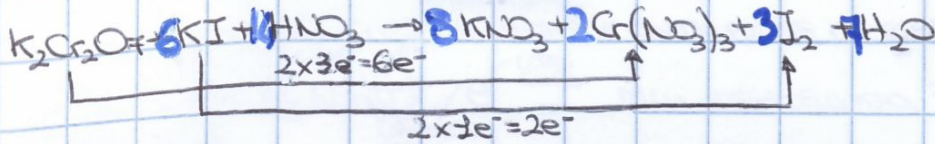 K₂Cr₂O₇+6KI+14HNO₃→8KNO₃+2Cr(NO₃)₃+3I₂+7H₂O
2×3e⁻=6e⁻
2×1e⁻=2e⁻